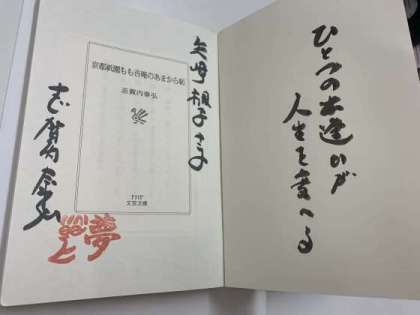 ひとつの出逢いが
人生を変へる
京都祇園もも吉庵のあまから帖
志賀内泰弘
PHP
文芸文庫
志賀内泰弘
夢